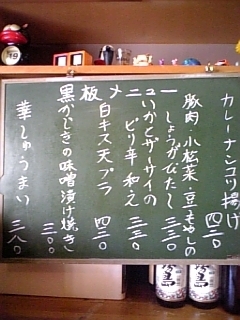 板メニュー
カレーナンコツ揚げ
四三〇
豚肉・小松菜・豆もやしの
しょうがびたし
三三〇
いかとザーサイの
ピリ辛和え
三三〇
白キス天プラ
四三〇
黒がしらの味噌漬け焼き
三〇〇
華しゅうまい
三八〇